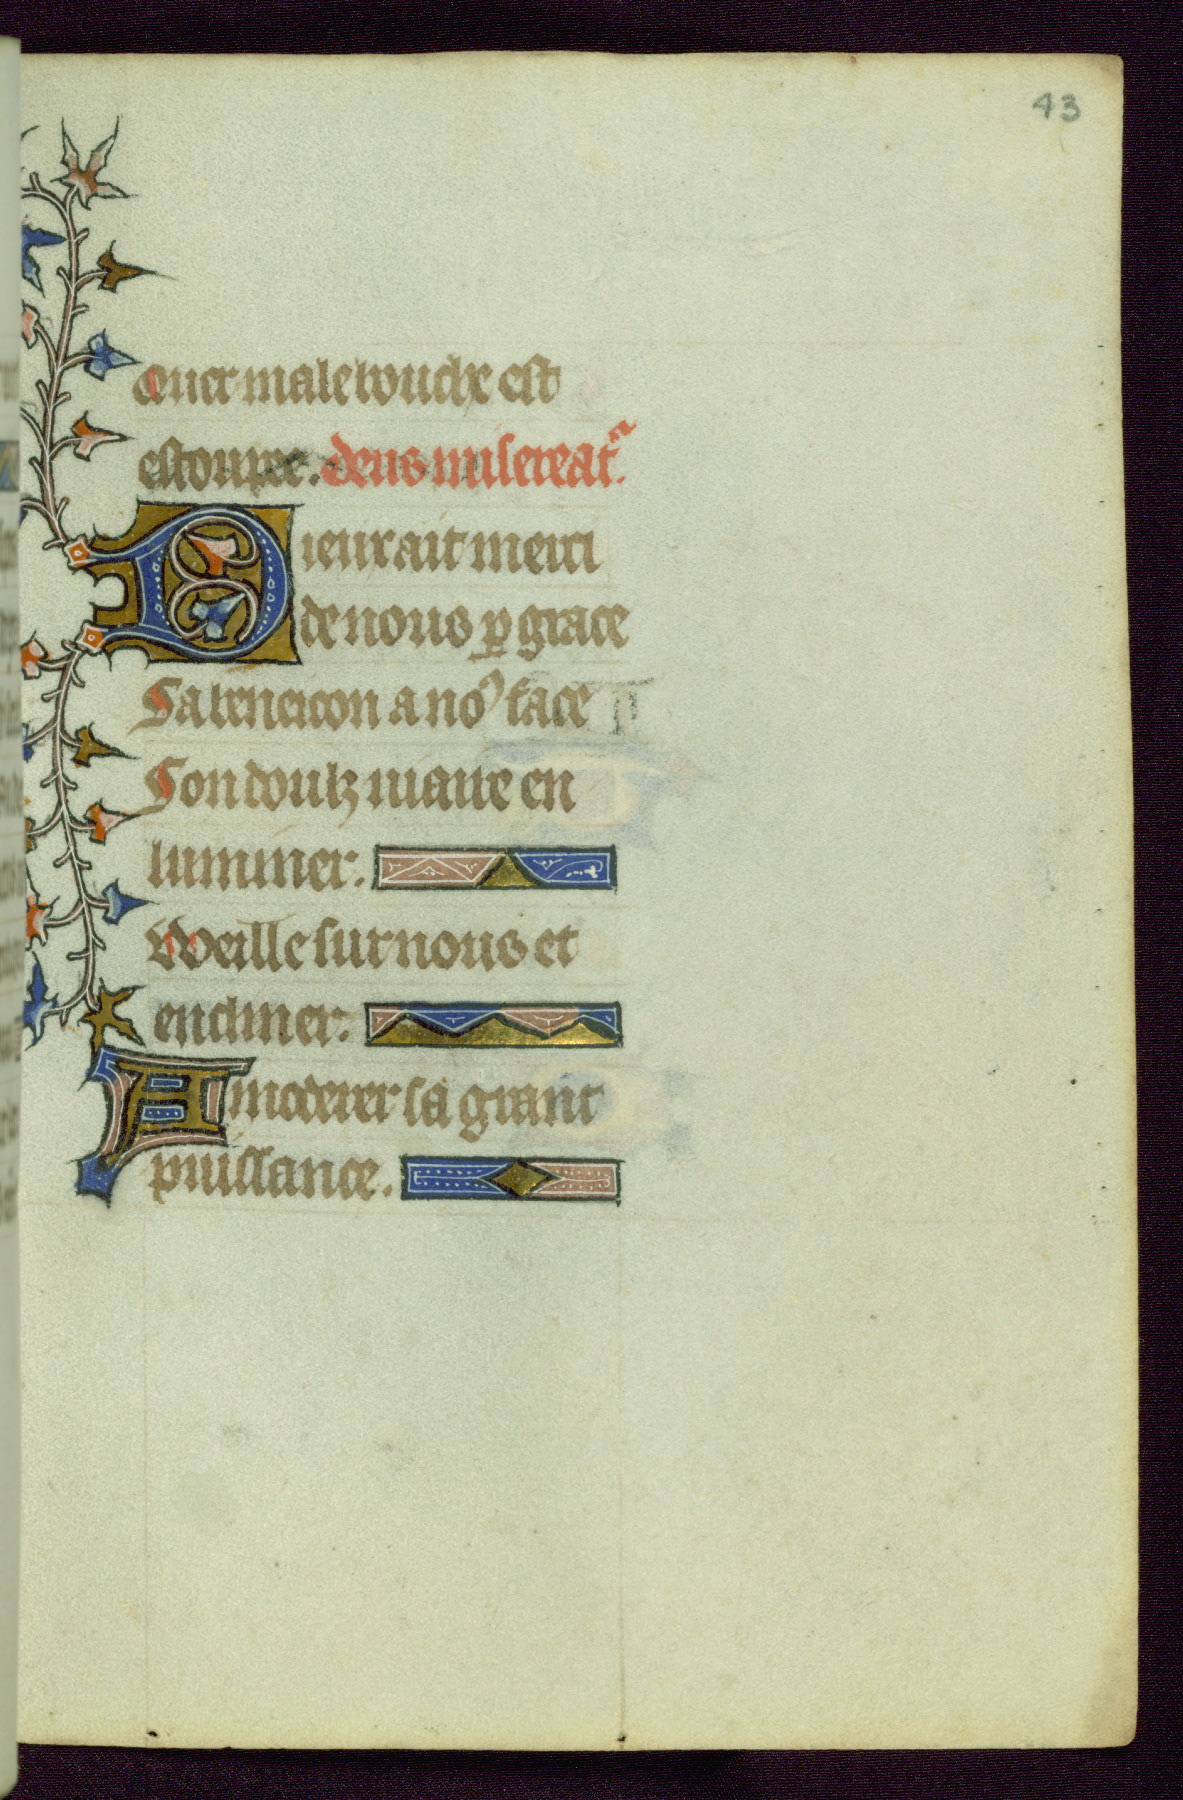 43
Quer male bouche est
estoupee. deus misereat᷑.
Dieux ait merci
de nous ꝑ grace
Sa beneicon a noꝰ face
Son doulz uiaire en
luminer.
Weille sur nous et
encliner.
A moderer sa grant
puissance.